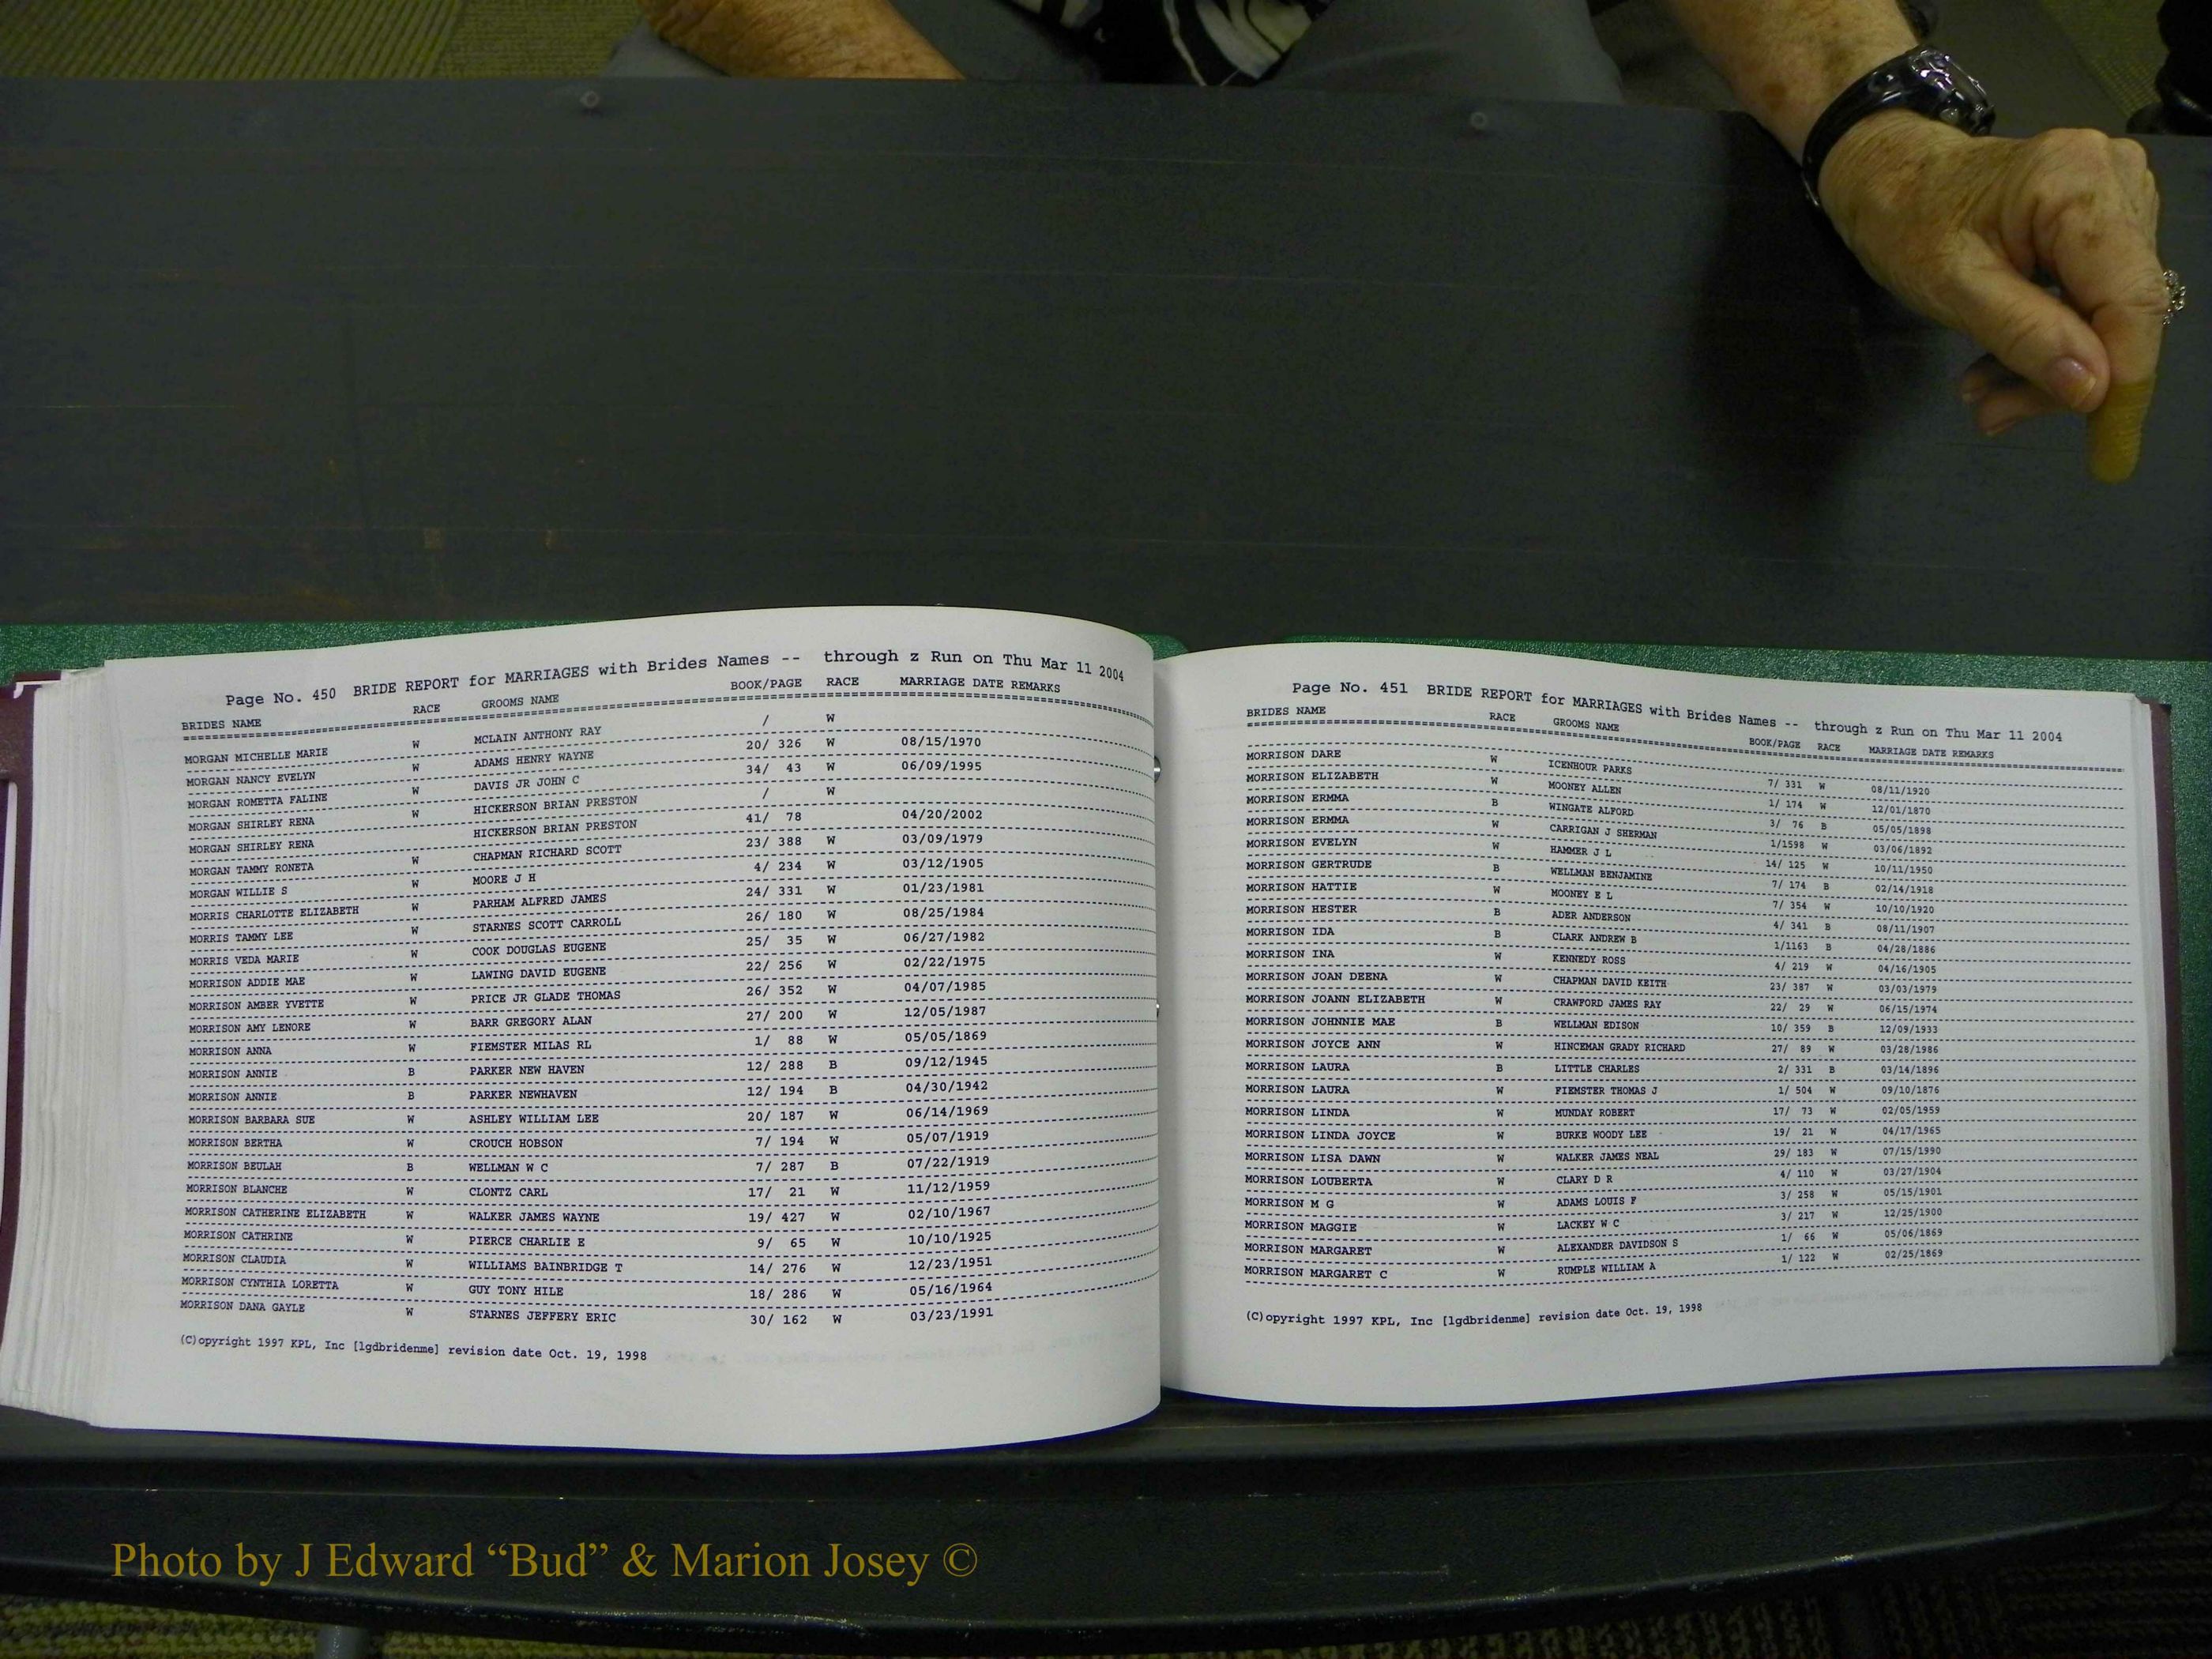 Page No. 450 BRIDE REPORT for MARRIAGES with Brides Names -- through z Run on Thu Mar 11 2004
BRIDES NAME RACE GROOMS NAME BOOK/PAGE RACE MARRIAGE DATE REMARKS
MORGAN MICHELLE MARIE W MCLAIN ANTHONY RAY / W
MORGAN NANCY EVELYN W ADAMS HENRY WAYNE 20/ 326 W 08/15/1970
MORGAN ROMETTA FALINE W DAVIS JR JOHN C 34/ 43 W 06/09/1995
MORGAN SHIRLEY RENA W HICKERSON BRIAN PRESTON / W
MORGAN SHIRLEY RENA HICKERSON BRIAN PRESTON 41/ 78 04/20/2002
MORGAN TAMMY RONETA W CHAPMAN RICHARD SCOTT 23/ 388 W 03/09/1979
MORGAN WILLIE S W MOORE J H 4/ 234 W 03/12/1905
MORRIS CHARLOTTE ELIZABETH W PARHAM ALFRED JAMES 24/ 331 W 01/23/1981
MORRIS TAMMY LEE W STARNES SCOTT CARROLL 26/ 180 W 08/25/1984
MORRIS VEDA MARIE W COOK DOUGLAS EUGENE 25/ 35 W 06/27/1982
MORRISON ADDIE MAE W LAWING DAVID EUGENE 22/ 256 W 02/22/1975
MORRISON AMBER YVETTE W PRICE JR GLADE THOMAS 26/ 352 W 04/07/1985
MORRISON AMY LENORE W BARR GREGORY ALAN 27/ 200 W 12/05/1987
MORRISON ANNA W FIEMSTER MILAS RL 1/ 88 W 05/05/1869
MORRISON ANNIE B PARKER NEW HAVEN 12/ 288 B 09/12/1945
MORRISON ANNIE B PARKER NEWHAVEN 12/ 194 B 04/30/1942
MORRISON BARBARA SUE W ASHLEY WILLIAM LEE 20/ 187 W 06/14/1969
MORRISON BERTHA W CROUCH HOBSON 7/ 194 W 05/07/1919
MORRISON BEULAH B WELLMAN W C 7/ 287 B 07/22/1919
MORRISON BLANCHE W CLONTZ CARL 17/ 21 W 11/12/1959
MORRISON CATHERINE ELIZABETH W WALKER JAMES WAYNE 19/ 427 W 02/10/1967
MORRISON CATHRINE W PIERCE CHARLIE E 9/ 65 W 10/10/1925
MORRISON CLAUDIA W WILLIAMS BAINBRIDGE T 14/ 276 W 12/23/1951
MORRISON CYNTHIA LORETTA W GUY TONY HILE 18/ 286 W 05/16/1964
MORRISON DANA GAYLE W STARNES JEFFERY ERIC 30/ 162 W 03/23/1991
(C)opyright 1997 KPL, Inc [lgdbridenme] revision date Oct. 19, 1998
Page No. 451 BRIDE REPORT for MARRIAGES with Brides Names -- through z Run on Thu Mar 11 2004
BRIDES NAME RACE GROOMS NAME BOOK/PAGE RACE MARRIAGE DATE REMARKS
MORRISON DARE W ICENHOUR PARKS 7/ 331 W 08/11/1920
MORRISON ELIZABETH W MOONEY ALLEN 1/ 174 W 12/01/1870
MORRISON ERMMA B WINGATE ALFORD 3/ 76 B 05/05/1898
MORRISON ERMMA W CARRIGAN J SHERMAN 1/1598 W 03/06/1892
MORRISON EVELYN W HAMMER J L 14/ 125 W 10/11/1950
MORRISON GERTRUDE B WELLMAN BENJAMINE 7/ 174 B 02/14/1918
MORRISON HATTIE W MOONEY E L 7/ 354 W 10/10/1920
MORRISON HESTER B ADER ANDERSON 4/ 341 B 08/11/1907
MORRISON IDA B CLARK ANDREW B 1/1163 B 04/28/1886
MORRISON INA W KENNEDY ROSS 4/ 219 W 04/16/1905
MORRISON JOAN DEENA W CHAPMAN DAVID KEITH 23/ 387 W 03/03/1979
MORRISON JOANN ELIZABETH W CRAWFORD JAMES RAY 22/ 29 W 06/15/1974
MORRISON JOHNNIE MAE B WELLMAN EDISON 10/ 359 B 12/09/1933
MORRISON JOYCE ANN W HINCEMAN GRADY RICHARD 27/ 89 W 03/28/1986
MORRISON LAURA B LITTLE CHARLES 2/ 331 B 03/14/1896
MORRISON LAURA W FIEMSTER THOMAS J 1/ 504 W 09/10/1876
MORRISON LINDA W MUNDAY ROBERT 17/ 73 W 02/05/1959
MORRISON LINDA JOYCE W BURKE WOODY LEE 19/ 21 W 04/17/1965
MORRISON LISA DAWN W WALKER JAMES NEAL 29/ 183 W 07/15/1990
MORRISON LOUBERTA W CLARY D R 4/ 110 W 03/27/1904
MORRISON M G W ADAMS LOUIS F 3/ 258 W 05/15/1901
MORRISON MAGGIE W LACKEY W C 3/ 217 W 12/25/1900
MORRISON MARGARET W ALEXANDER DAVIDSON S 1/ 66 W 05/06/1869
MORRISON MARGARET C W RUMPLE WILLIAM A 1/ 122 W 02/25/1869
(C)opyright 1997 KPL, Inc [lgdbridenme] revision date Oct. 19, 1998
Photo by J Edward “Bud” & Marion Josey ©